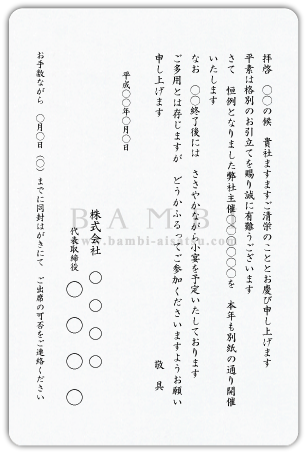 拝啓　〇〇の候　貴社ますますご清栄のこととお慶び申し上げます
平素は格別のお引立てを賜り誠に有難うございます
さて　恒例となりました弊社主催〇〇〇〇〇を　本年も別紙の通り開催
いたします
なお　〇〇終了後には　ささやかながら小宴を予定いたしております
ご多用とは存じますが　どうかふるってご参加くださいますようお願い
申し上げます
敬　具
平成〇〇年〇月〇日
株式会社　〇〇〇〇
代表取締役　〇〇〇〇
お手数ながら　〇月〇日（〇）までに同封はがきにて　ご出席の可否をご連絡ください
BAMB
www.bambi-aisatsu.com